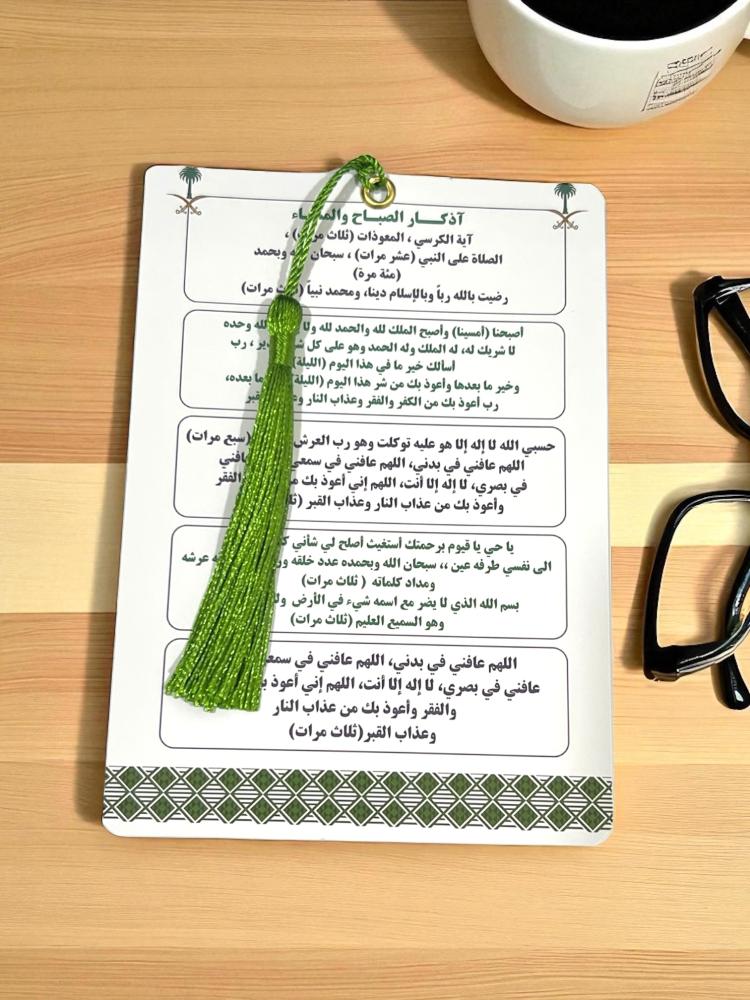 آذكـار الصبـاح والمسـاء
آية الكرسي ، المعوذات (ثلاث مرات) ،
الصلاة على النبي (عشر مرات) ، سبحان وبحمد
(مئة مرة)
رضيت بالله رباً وبالإسلام دينا، ومحمد نبياً مرات)
أصبحنا (أمسينا) وأصبح الملك لله والحمد لله ولا الله وحده
لا شريك له، له الملك وله الحمد وهو على كل ، رب
أسألك خير ما في هذا اليوم (الليلة)
وخير ما بعدها وأعوذ بك من شر هذا اليوم (الليلة ما بعده،
رب أعوذ بك من الكفر والفقر وعذاب النار
حسبي الله لا إله إلا هو عليه توكلت وهو رب العرش (سبع مرات)
اللهم عافني في بدني، اللهم عافني في سمعي
في بصري، لا إله إلا أنت، اللهم إني أعوذ بك
وأعوذ بك من عذاب النار وعذاب القبر
يا حي يا قيوم برحمتك أستغيث أصلح لي شأني
الى نفسي طرفه عين ،، سبحان الله وبحمده عدد خلقه عرشه
ومداد كلماته ( ثلاث مرات)
بسم الله الذي لا يضر مع اسمه شيء في الأرض
وهو السميع العليم (ثلاث مرات)
اللهم عافني في بدني، اللهم عافني في
عافني في بصري، لا إله إلا أنت، اللهم إني أعوذ
والفقر وأعوذ بك من عذاب النار
وعذاب القبر(ثلاث مرات)